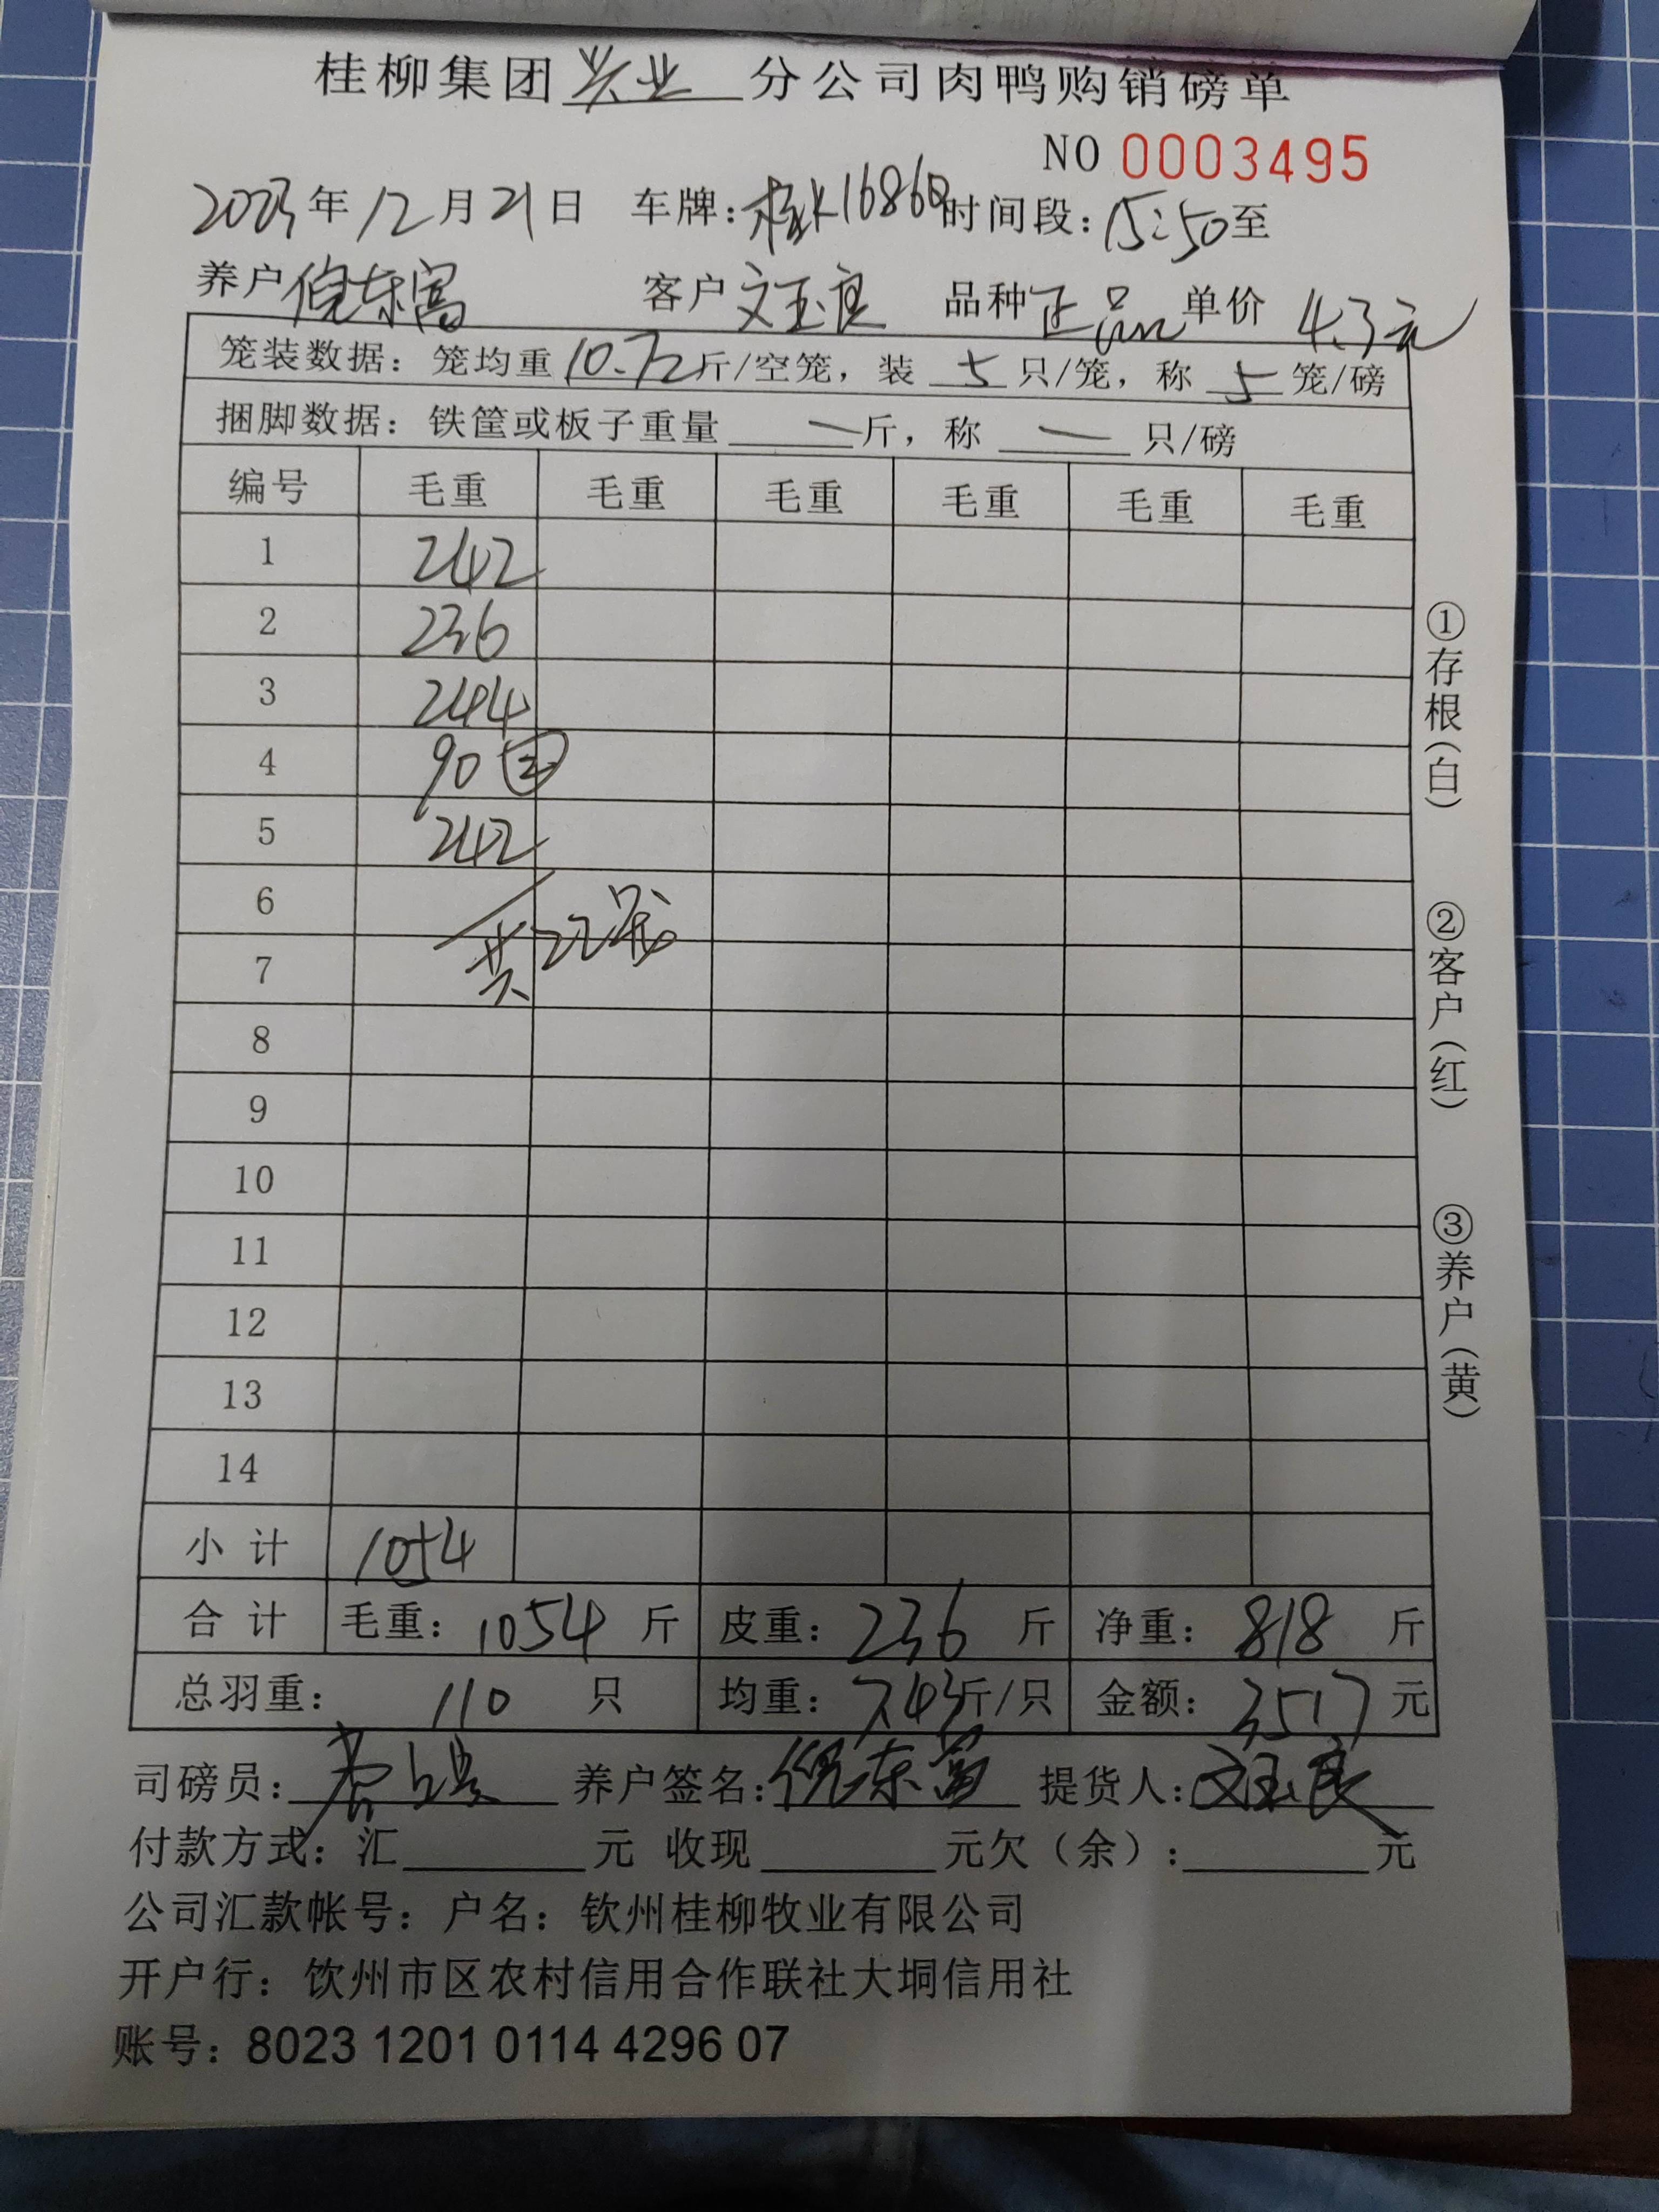 桂柳集团兴业分公司肉鸭购销磅单
NO 0003495
2023年12月21日 车牌:桂K16860 时间段:15:50至
养户倪东富 客户文玉良 品种正品 单价 4.3元
笼装数据: 笼均重10.72斤/空笼, 装 5 只/笼, 称 5 笼/磅
捆脚数据: 铁筐或板子重量 — 斤, 称 — 只/磅
编号 毛重 毛重 毛重 毛重 毛重 毛重
1 242
2 236
3 244
4 90 ②
5 242
6
7 共22笼
8
9
10
11
12
13
14
小计 1054
合计 毛重: 1054 斤 皮重: 236 斤 净重: 818 斤
总羽重: 110 只 均重: 7.43斤/只 金额: 3517 元
司磅员: 养户签名:倪东富 提货人:文玉良
付款方式: 汇 元 收现 元欠(余): 元
公司汇款帐号: 户名: 钦州桂柳牧业有限公司
开户行: 钦州市区农村信用合作联社大垌信用社
账号: 8023 1201 0114 4296 07
①存根(白)
②客户(红)
③养户(黄)